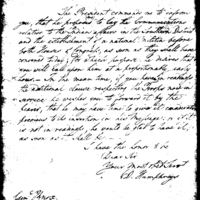 The President commands me to inform
you, that he proposes to lay the Communications
relative to the Indian affairs in the southern District
and the establishment of a national Militia before
both Houses of Congress, as soon as they shall have
convened today; for which purpose he desires that
you will call upon him at a proportionably early
hour — in the mean time, if you have in readiness
the additional clause respecting the Troops now in
service, he wishes you to forward it by the
bearer, that he may have time to give it consideration
previous to its insertion in his Message; or if it
is not in readiness, he would be glad to have it,
as soon as it shall be
I have the honor to be
Dear Sir
Your most Obedient
D. Humphreys
Genl. Knox